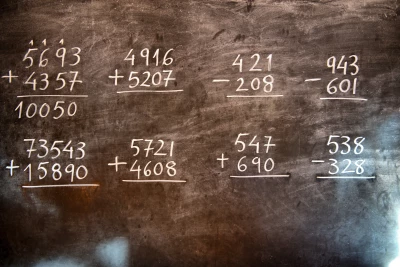 1 1 1
5693 4916 421 943
+4357 +5207 -208 -601
10050
73543 5721 547 538
+15890 +4608 +690 -328